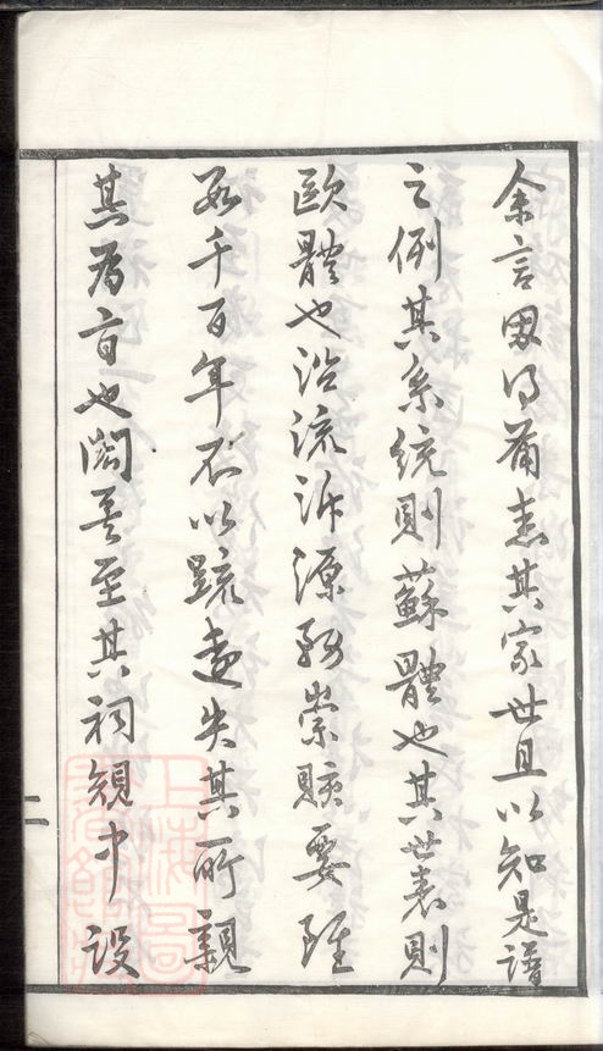 余言因得備悉其家世且以知是譜
之例其系統則蘇體也其世表則
歐體也沿流泝源務崇賅要雖
數千百年不以疏遠失其所親
其爲旨也闊矣至其祠規中設
二
上海圖
書館藏